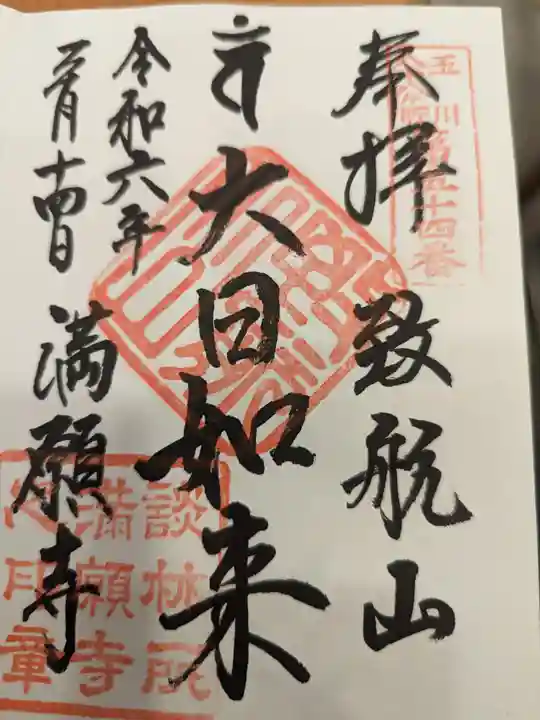 玉川
八十八ヶ所
第五十四番
奉拝
致航山
大日如来
令和六年
満願寺
談林所
満願寺
印章